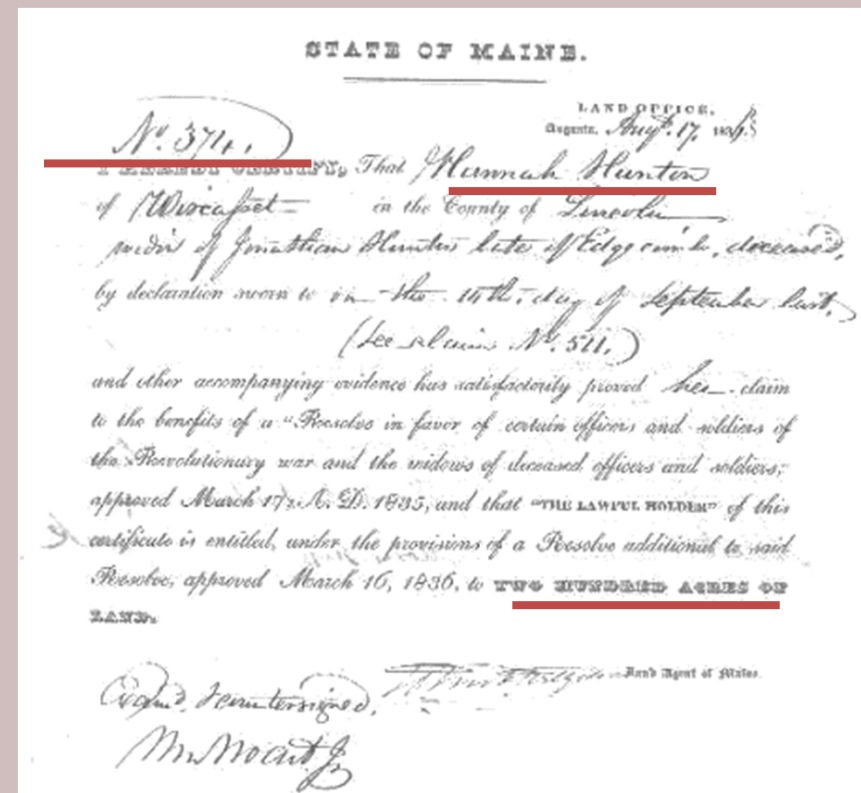 STATE OF MAINE.
LAND OFFICE,
Augusta, Augt. 17, 183
No. 374.
I HEREBY CERTIFY, That Hannah Hunton
of Wiscasset in the County of Lincoln
widow of Jonathan Hunton late of Edgcomb, deceased,
by declaration sworn to on the 14th. day of September last,
(See claim No. 511.)
and other accompanying evidence has satisfactorily proved her claim
to the benefits of a "Resolve in favor of certain officers and soldiers of
the Revolutionary war and the widows of deceased officers and soldiers,"
approved March 17, A. D. 1835, and that "THE LAWFUL HOLDER" of this
certificate is entitled, under the provisions of a Resolve additional to said
Resolve, approved March 16, 1836, to TWO HUNDRED ACRES OF
LAND.
Land Agent of Maine.
Exam'd. & countersigned,